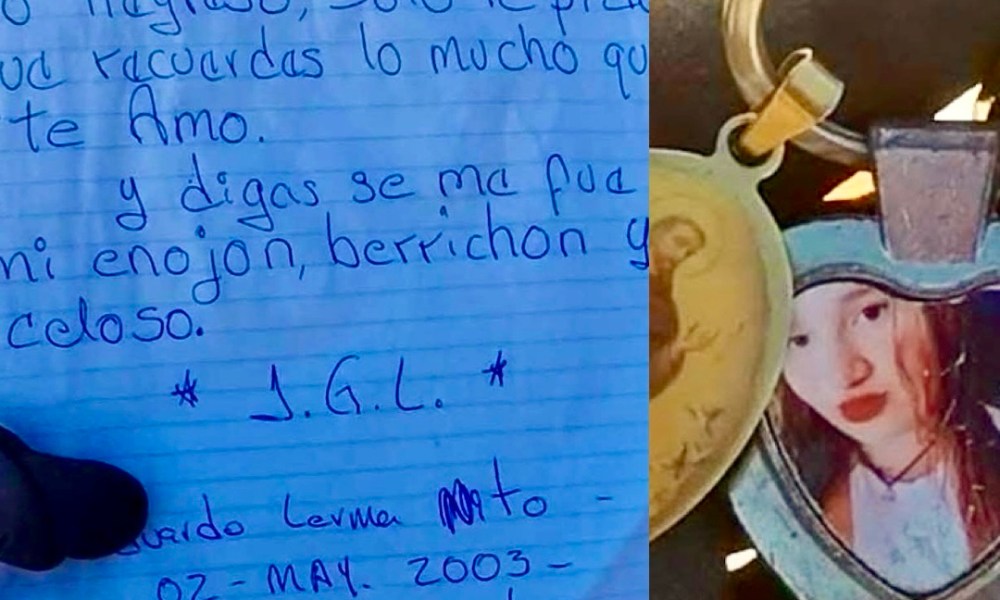 recuerdas lo mucho
te Amo.
y digas se me fue
mi enojon, berrichon y
celoso.
* J.G.L. *
Lerma
02 - MAY. 2003 -